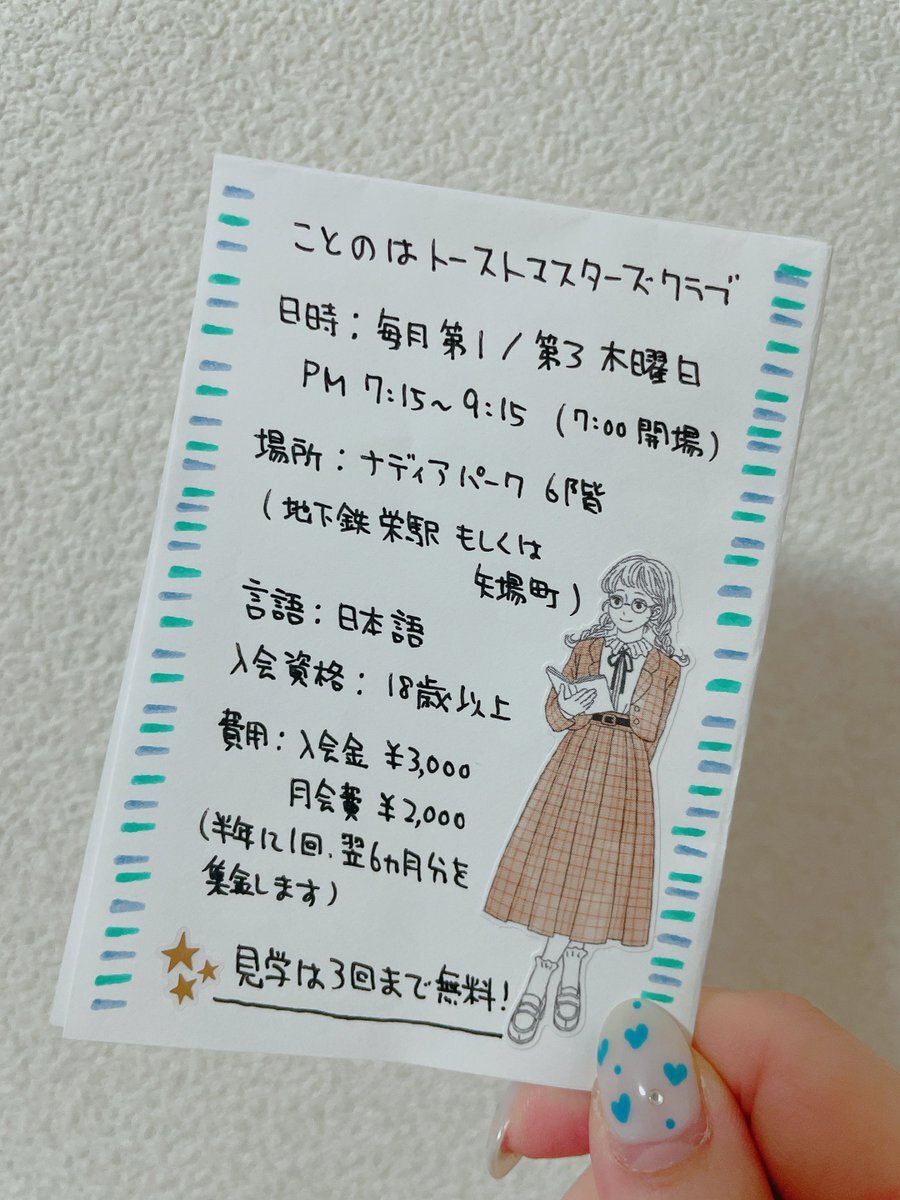 ことのはトーストマスターズクラブ
日時：毎月第1/第3木曜日
PM 7:15〜9:15 (7:00開場)
場所：ナディアパーク 6階
(地下鉄 栄駅 もしくは
矢場町)
言語：日本語
入会資格：18歳以上
費用：入会金 ¥3,000
月会費 ¥2,000
(半年に1回、翌6ヵ月分を
集金します)
見学は3回まで無料!